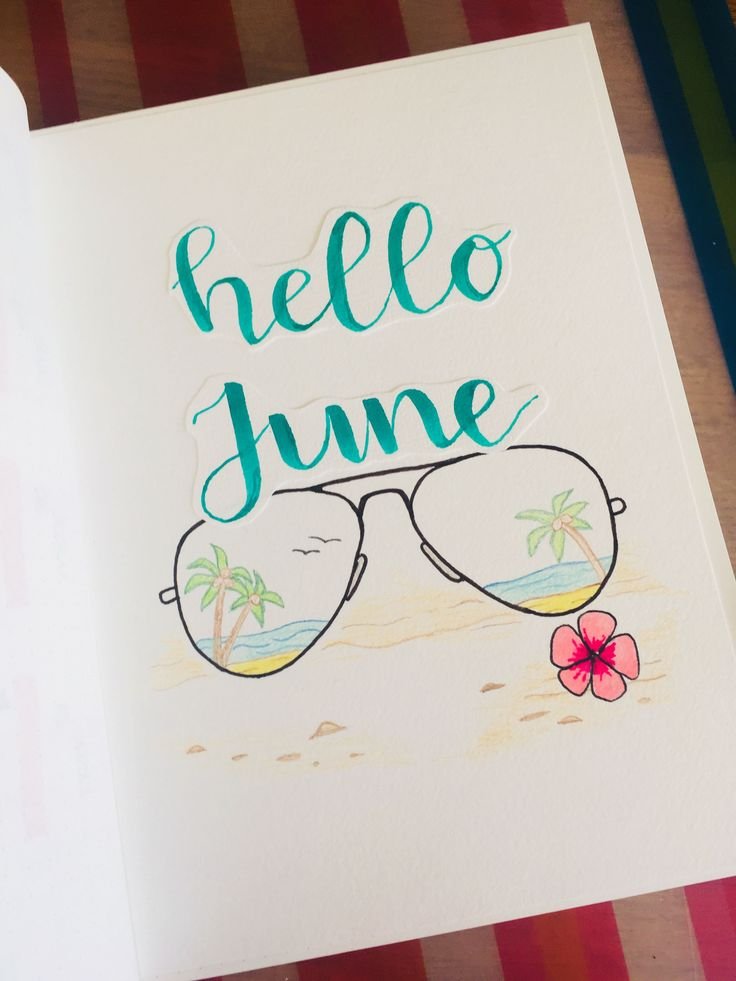 hello
June